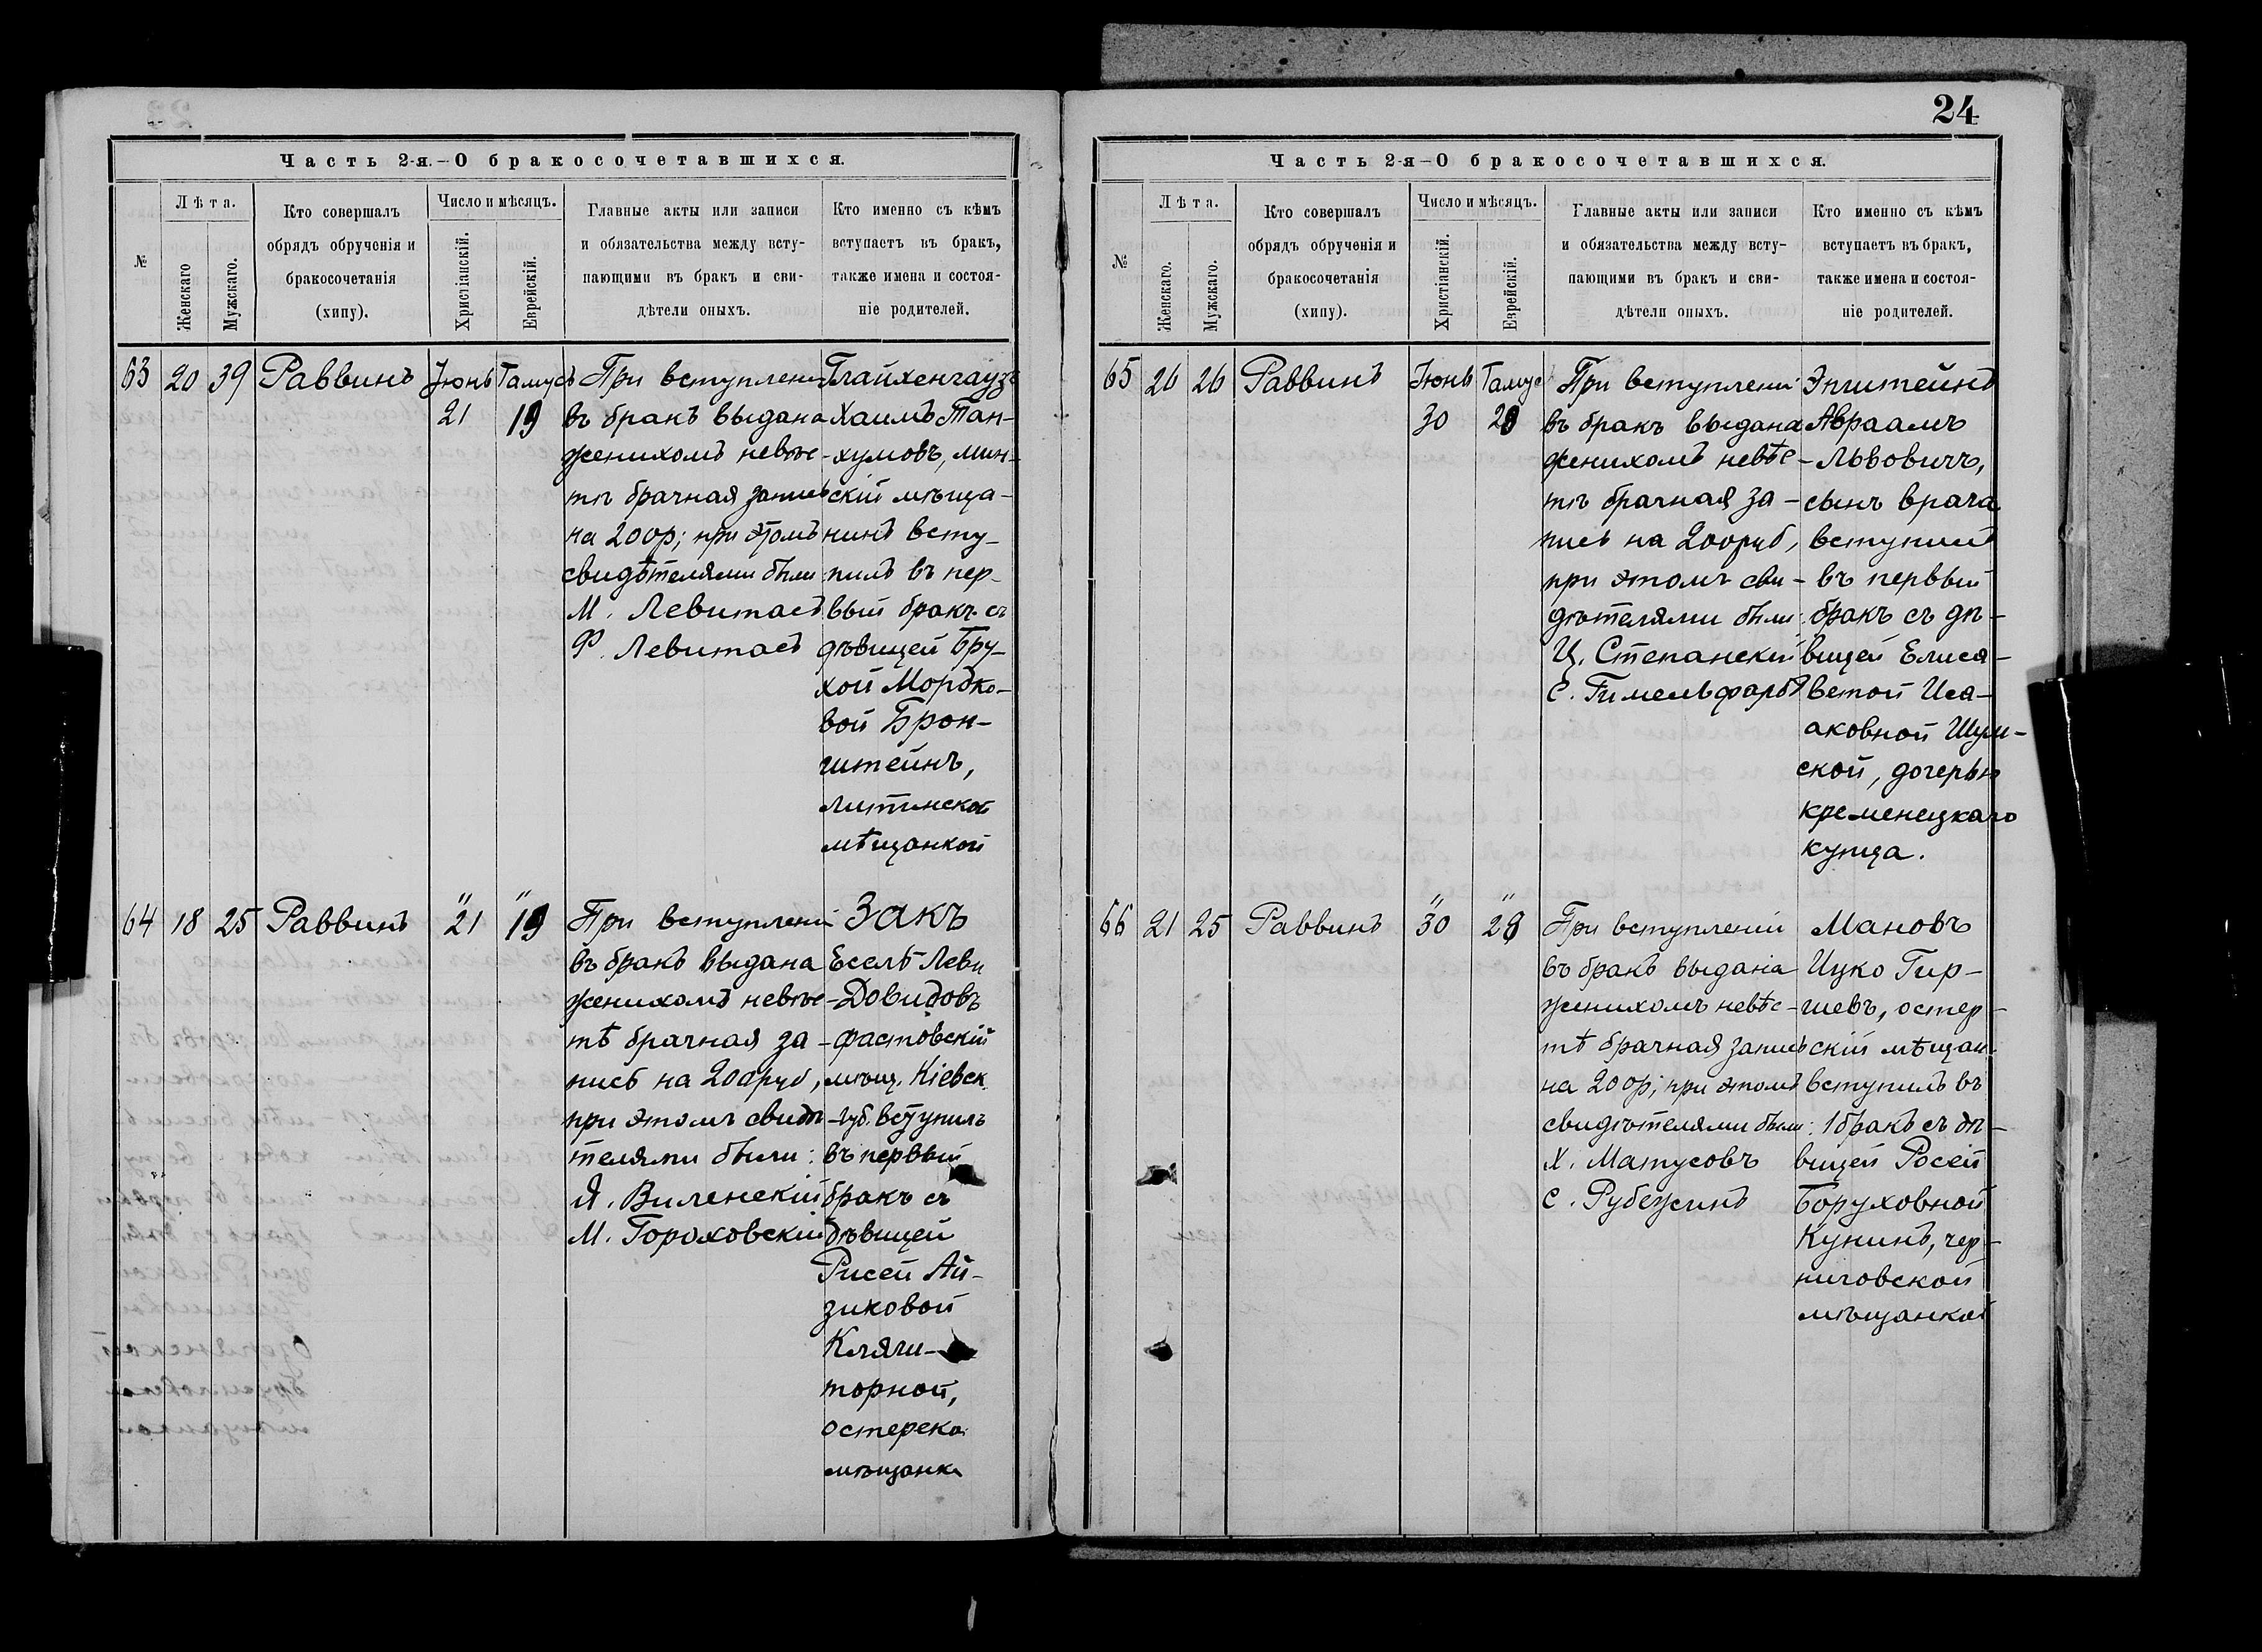 Часть 2-я.—О бракосочетавшихся.
№
Лѣта.
Женскаго
Мужскаго.
Кто совершалъ
обрядъ обрученія и
бракосочетанія
(хипу).
Число и мѣсяцъ.
Христіанскій.
Еврейскій.
Главные акты или записи
и обязательства между всту-
пающими въ бракъ и сви-
дѣтели оныхъ.
Кто именно съ кѣмъ
вступаетъ въ бракъ,
также имена и состоя-
ніе родителей.
63 20 39 Раввинъ
Іюнь
21
Тамусъ
19
При вступлени
въ бракъ выдана
женихомъ невѣс-
тѣ брачная запись
на 200р; при этомъ
свидѣтелями были:
М. Левитасъ
Ф. Левитасъ
Глайхенгаузъ
Хаимъ Тан-
хумовъ, мин-
скій мѣща-
нинъ всту-
пилъ въ пер-
вый бракъ съ
дѣвицей Бру-
хой Мордко-
вой Брон-
штейнъ,
литинской
мѣщанкой
64 18 25 Раввинъ
" 21
" 19
При вступлени
въ бракъ выдана
женихомъ невѣс-
тѣ брачная за-
пись на 200руб,
при этомъ свидѣ-
телями были:
Я. Виленскій
М. Гороховскій
Закъ
Еселъ Леви
Довидовъ
фастовскій
мѣщ. Кіевск.
губ. вступилъ
въ первый
бракъ съ
дѣвицей
Рисей Ай-
зиковой
Кляги-
торной,
остерско
мѣщанк
24
Часть 2-я—О бракосочетавшихся.
№
Лѣта.
Женскаго
Мужскаго.
Кто совершалъ
обрядъ обрученія и
бракосочетанія
(хипу).
Число и мѣсяцъ.
Христіанскій.
Еврейскій.
Главные акты или записи
и обязательства между всту-
пающими въ бракъ и сви-
дѣтели оныхъ.
Кто именно съ кѣмъ
вступаетъ въ бракъ,
также имена и состоя-
ніе родителей.
65 26 26 Раввинъ
Іюнь
30
Тамус
28
При вступлени
въ бракъ выдана
женихомъ невѣс-
тѣ брачная за-
пись на 200руб,
при этомъ сви-
дѣтелями были:
Ц. Степанскій
С. Гимельфарбъ
Эпштейнъ
Авраамъ
Львовичъ,
сынъ врача
вступилъ
въ первый
бракъ съ дѣ-
вицей Елиса-
ветой Иса-
аковной Шум-
ской, дочерью
кременецкаго
купца.
66 21 25 Раввинъ
" 30
" 28
При вступленіи
въ бракъ выдана
женихомъ невѣс-
тѣ брачная запись
на 200р; при этомъ
свидѣтелями были:
Х. Матусовъ
С. Рубежинъ
Мановъ
Ицко Гир-
шевъ, остер-
скій мѣщан.
вступилъ въ
1 бракъ съ дѣ-
вицей Росей
Боруховной
Кунинъ, чер-
ниговской
мѣщанкой